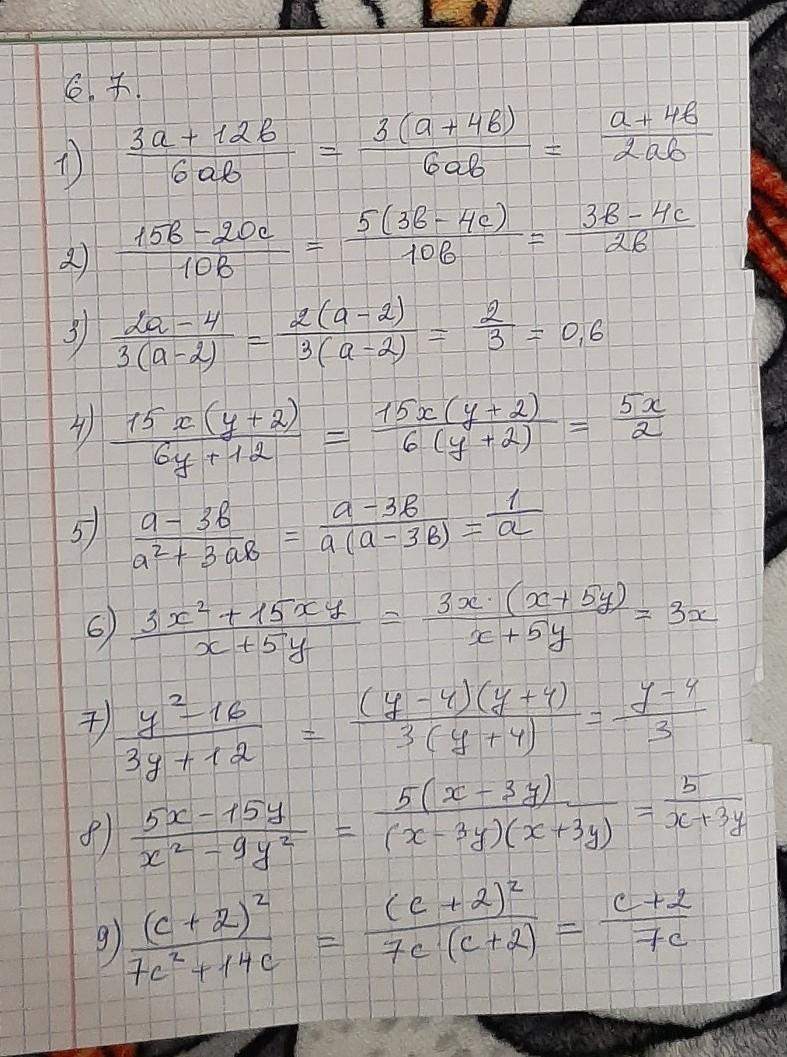 6.7.
1) (3a + 12в)/(6aв) = (3(a + 4в))/(6aв) = (a + 4в)/(2aв)
2) (15в - 20c)/(10в) = (5(3в - 4c))/(10в) = (3в - 4c)/(2в)
3) (2a - 4)/(3(a - 2)) = (2(a - 2))/(3(a - 2)) = 2/3 = 0,6
4) (15x(y + 2))/(6y + 12) = (15x(y + 2))/(6(y + 2)) = 5x/2
5) (a - 3в)/(a² + 3aв) = (a - 3в)/(a(a - 3в)) = 1/a
6) (3x² + 15xy)/(x + 5y) = (3x · (x + 5y))/(x + 5y) = 3x
7) (y² - 16)/(3y + 12) = ((y - 4)(y + 4))/(3(y + 4)) = (y - 4)/3
8) (5x - 15y)/(x² - 9y²) = (5(x - 3y))/((x - 3y)(x + 3y)) = 5/(x + 3y)
9) (c + 2)²/(7c² + 14c) = (c + 2)²/(7c · (c + 2)) = (c + 2)/(7c)